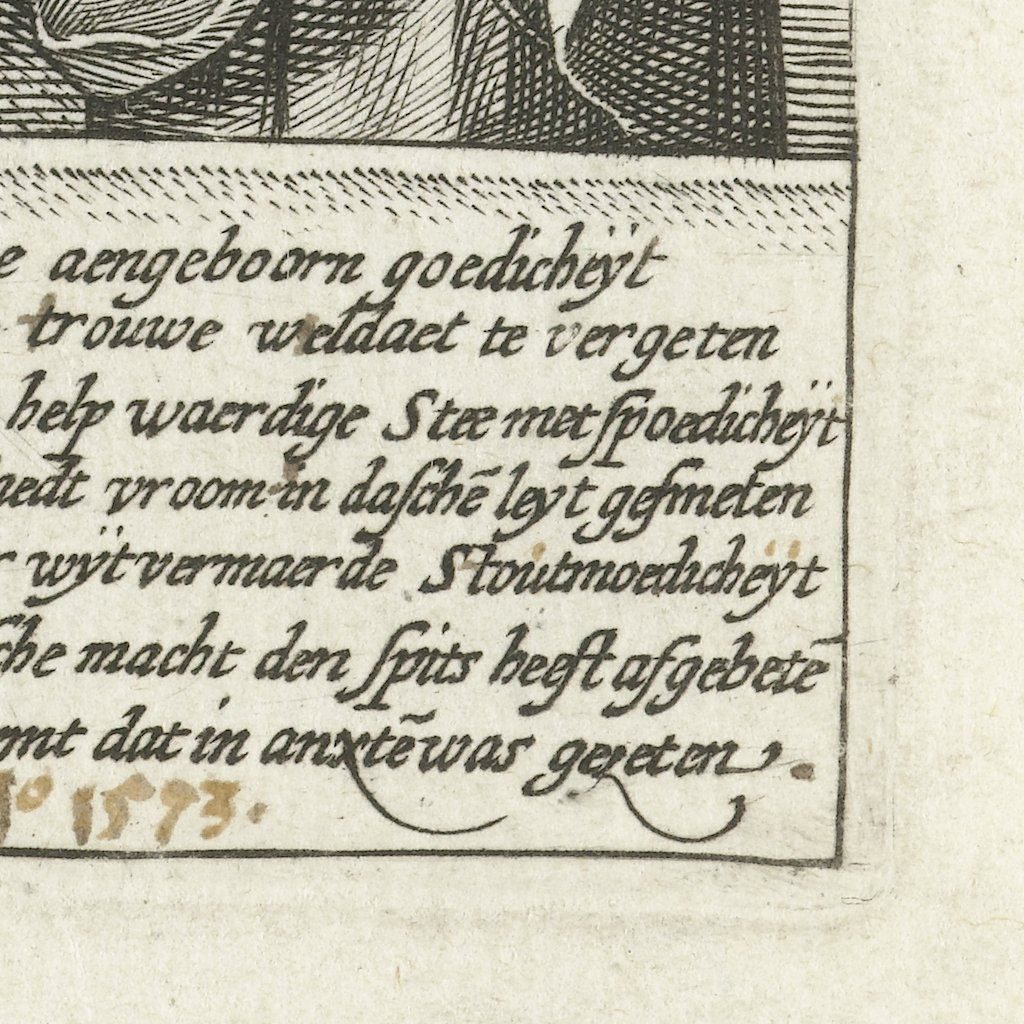 e aengeboorn goedicheÿt
trouwe weldaet te vergeten
help waerdige Stee met spoedicheÿt
vroom in daschē leyt gesmeten
wÿtvermaerde Stoutmoedicheÿt
che macht den spits heeft afgebetē
dat in anxtē was gezeten
1573.